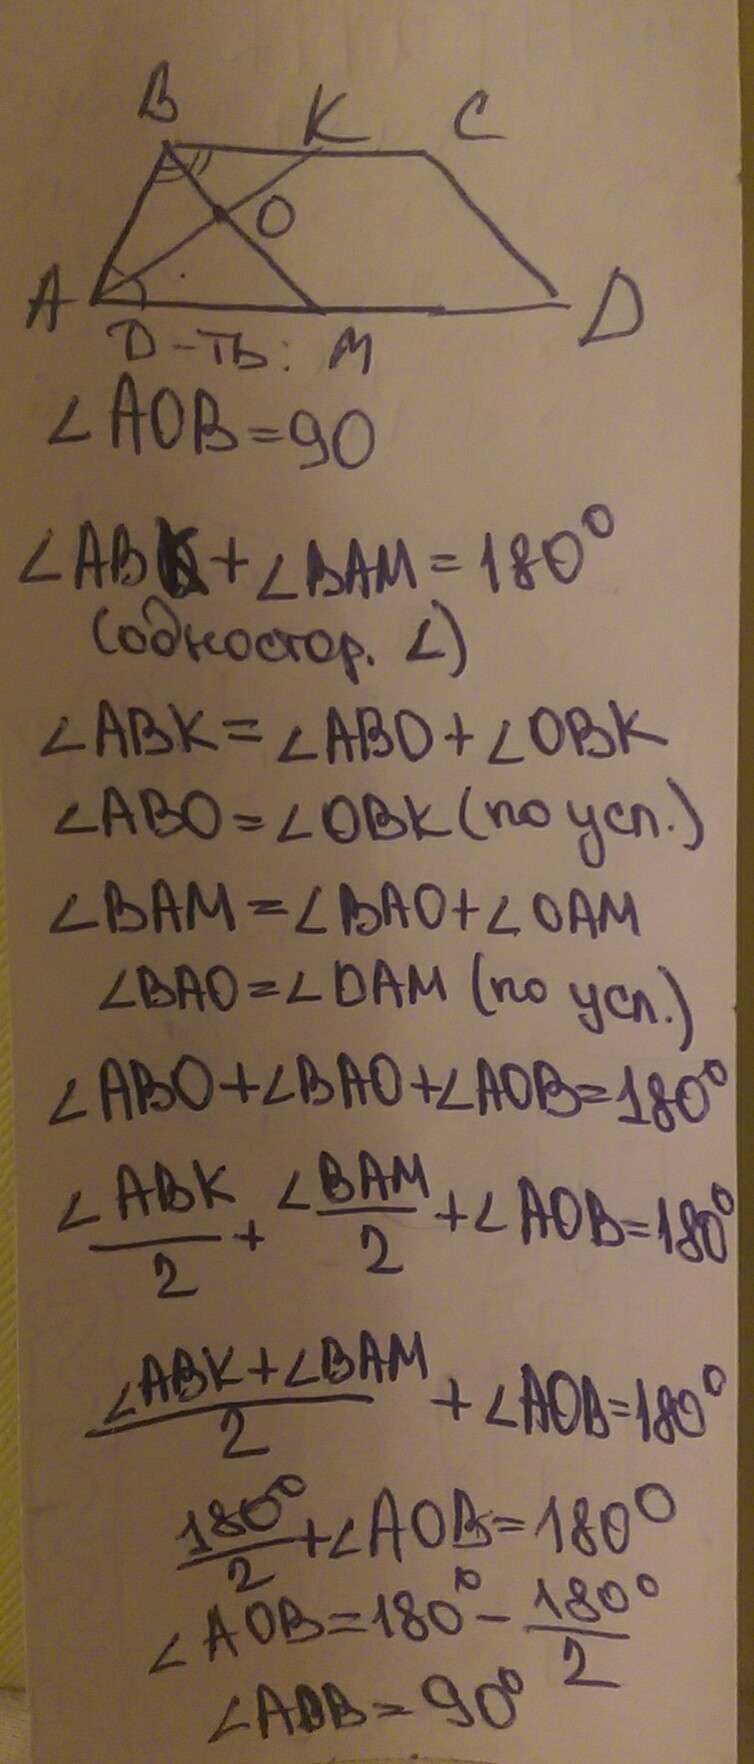 B K C
O
A D
Д-ть: M
∠AOB=90
∠ABK+∠BAM=180°
(одностор. ∠)
∠ABK=∠ABO+∠OBK
∠ABO=∠OBK(по усл.)
∠BAM=∠BAO+∠OAM
∠BAO=∠OAM (по усл.)
∠ABO+∠BAO+∠AOB=180°
∠ABK/2+∠BAM/2+∠AOB=180°
∠ABK+∠BAM/2+∠AOB=180°
180°/2+∠AOB=180°
∠AOB=180°-180°/2
∠AOB=90°